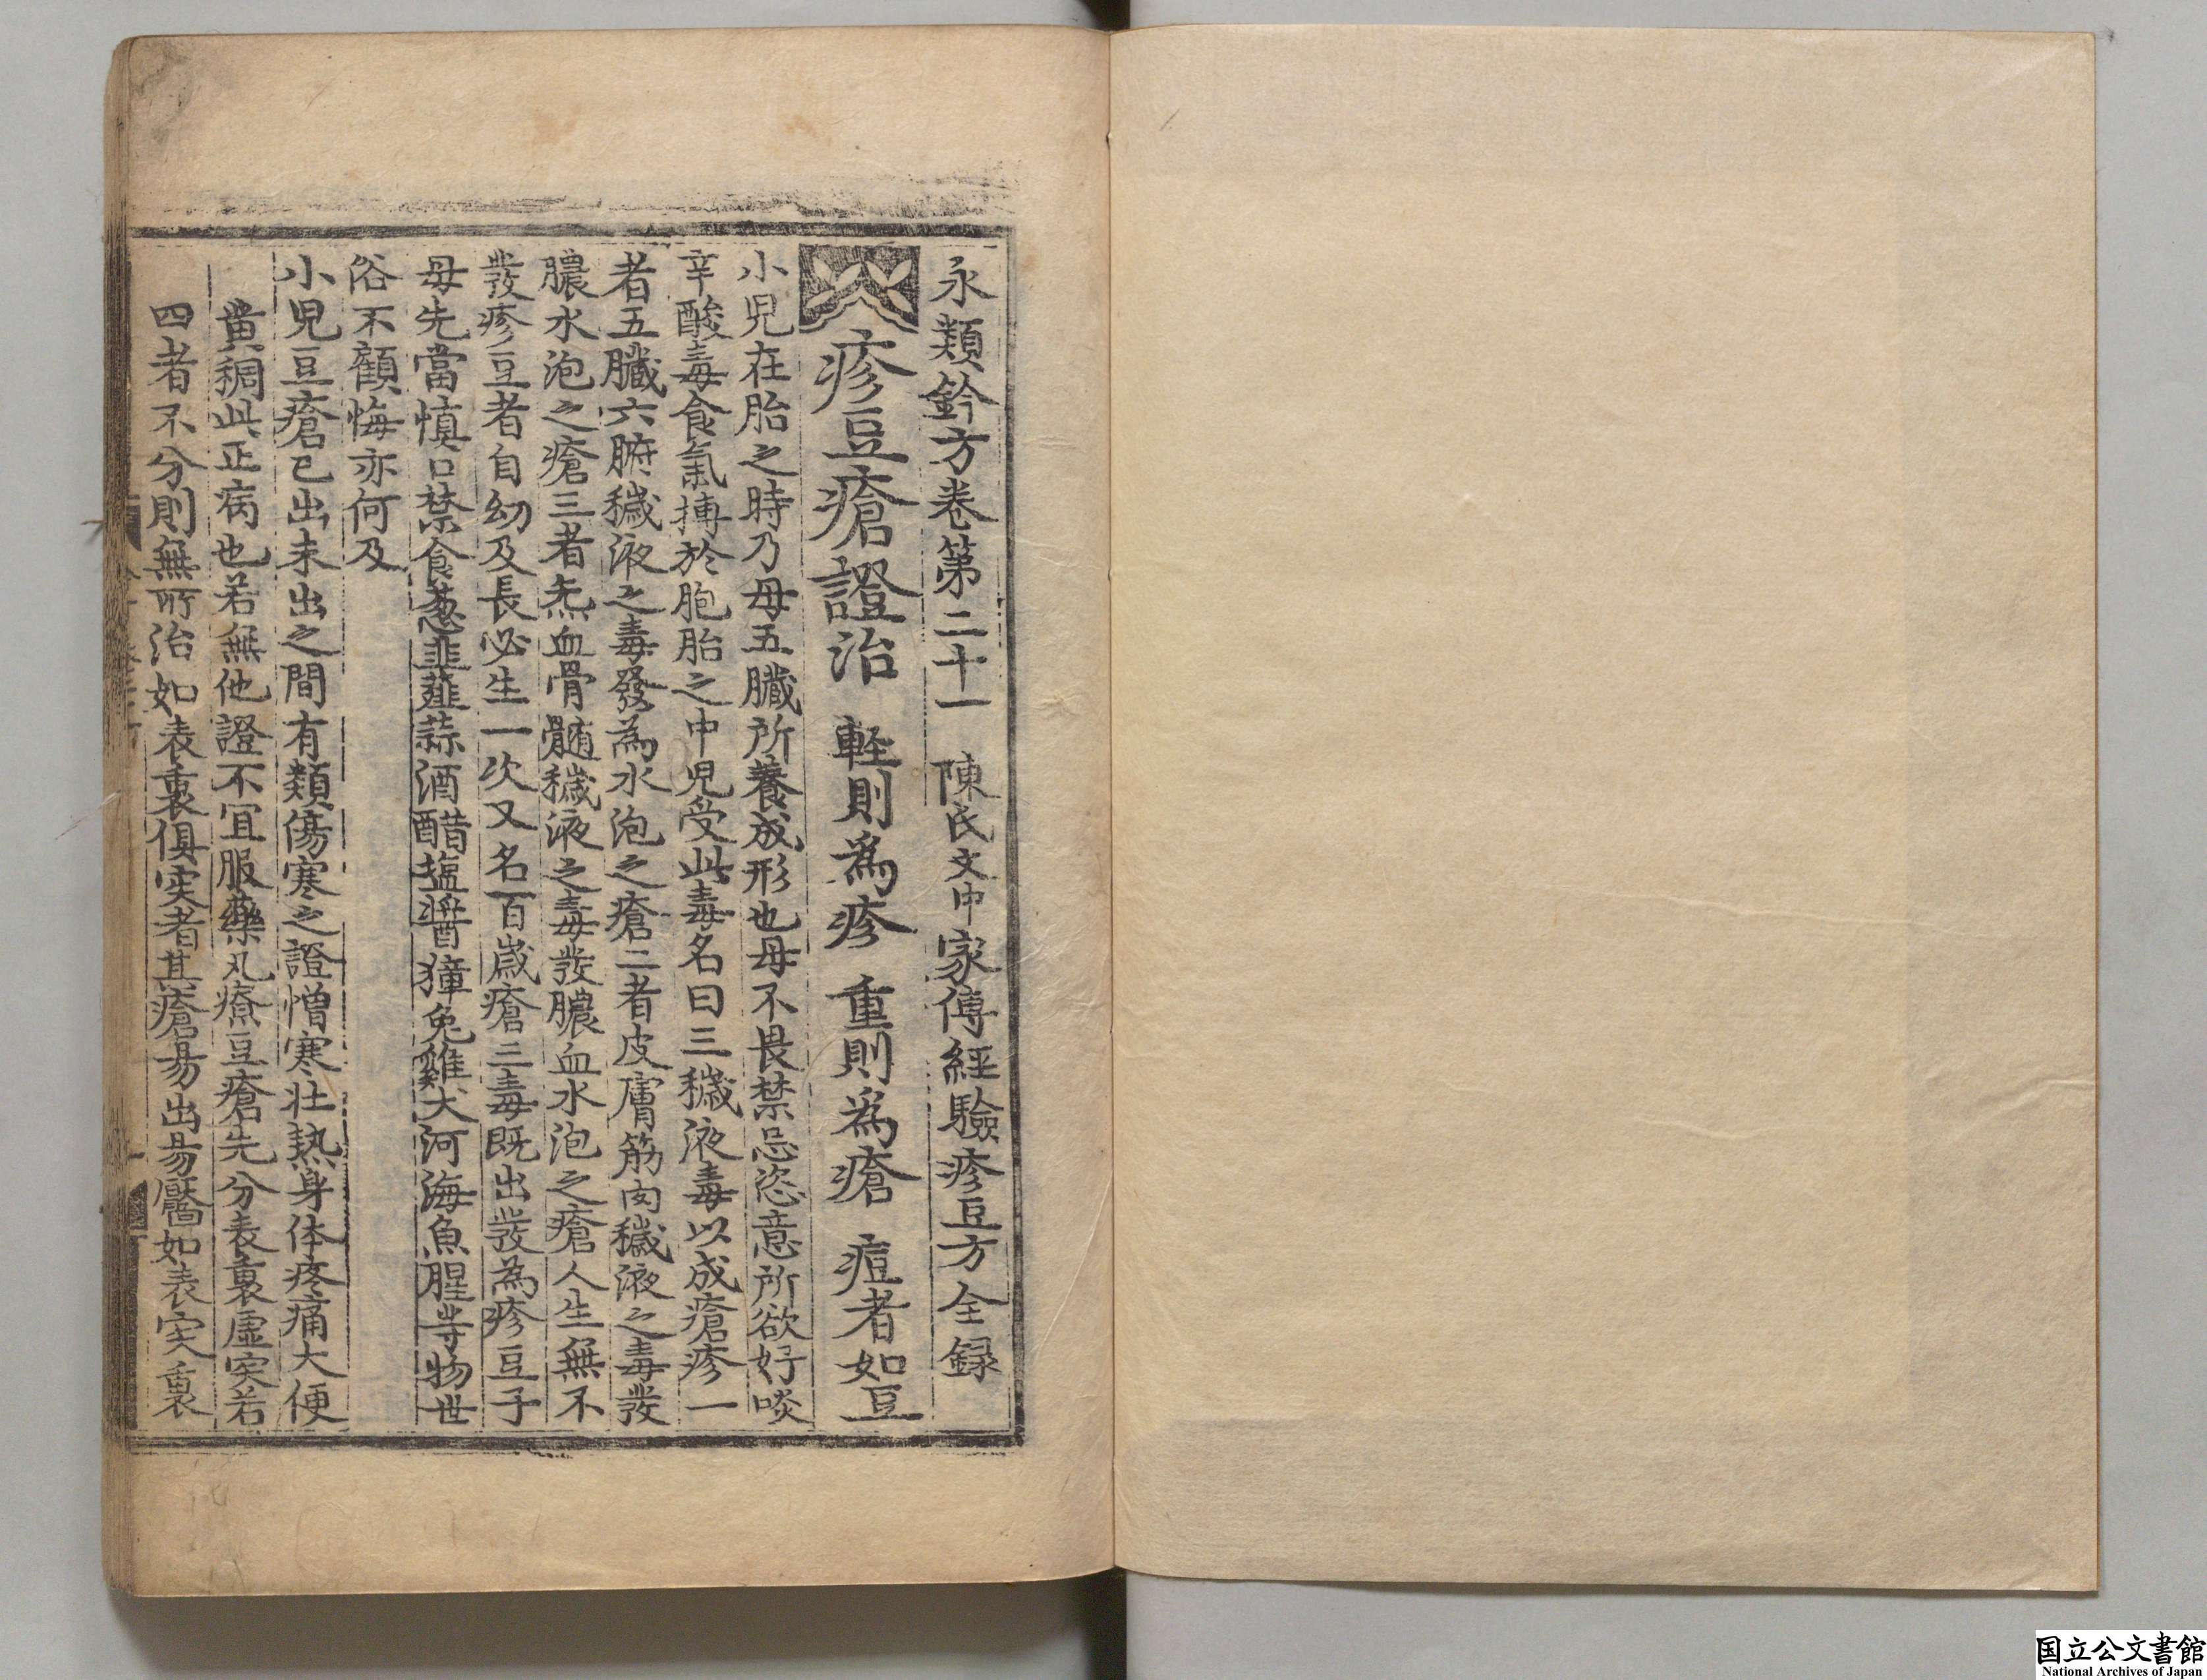 永類鈐方卷第二十一　陳氏文中家傳經驗疹豆方全録
疹豆瘡證治　軽則為疹　重則為瘡　痘者如豆
小児在胎之時乃母五臓所養成形也母不畏禁忌恣意所欲好啖
辛酸毒食氣摶於胞胎之中児受此毒名曰三穢液毒以成瘡疹一
者五臓六腑穢液之毒發為水泡之瘡二者皮膚筋肉穢液之毒發
膿水泡之瘡三者炁血骨髄穢液之毒發膿血水泡之瘡人生無不
發疹豆者自幼及長必生一次又名百歲瘡三毒既出發為疹豆子
母先當慎口禁食葱韭薤蒜酒醋塩醬獐兔雞犬河海魚腥等物世
俗不顧悔亦何及
小児豆瘡已出未出之間有類傷寒之證憎寒壮热身体疼痛大便
黄稠此正病也若無他證不宜服藥凡療豆瘡先分表裏虛实若
四者不分則無所治如表裏俱实者其瘡易出易靨如表实裏
国立公文書館
National Archives of Japan